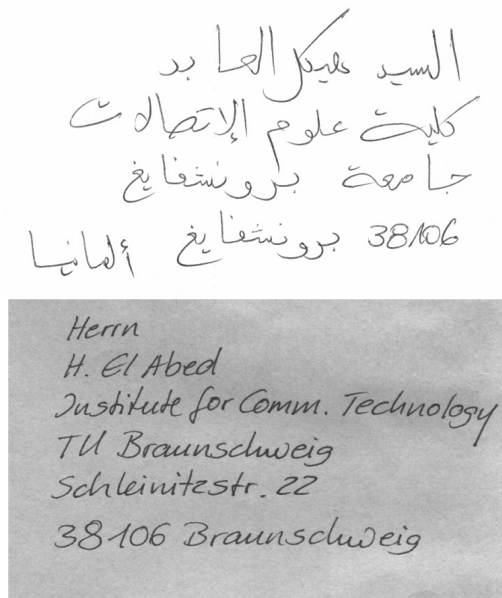 السيد هيكل العابد
كلية علوم الإتصالات
جامعة برونشفايغ
38106 برونشفايغ ألمانيا
Herrn
H. El Abed
Institute for Comm. Technology
TU Braunschweig
Schleinitzstr. 22
38106 Braunschweig